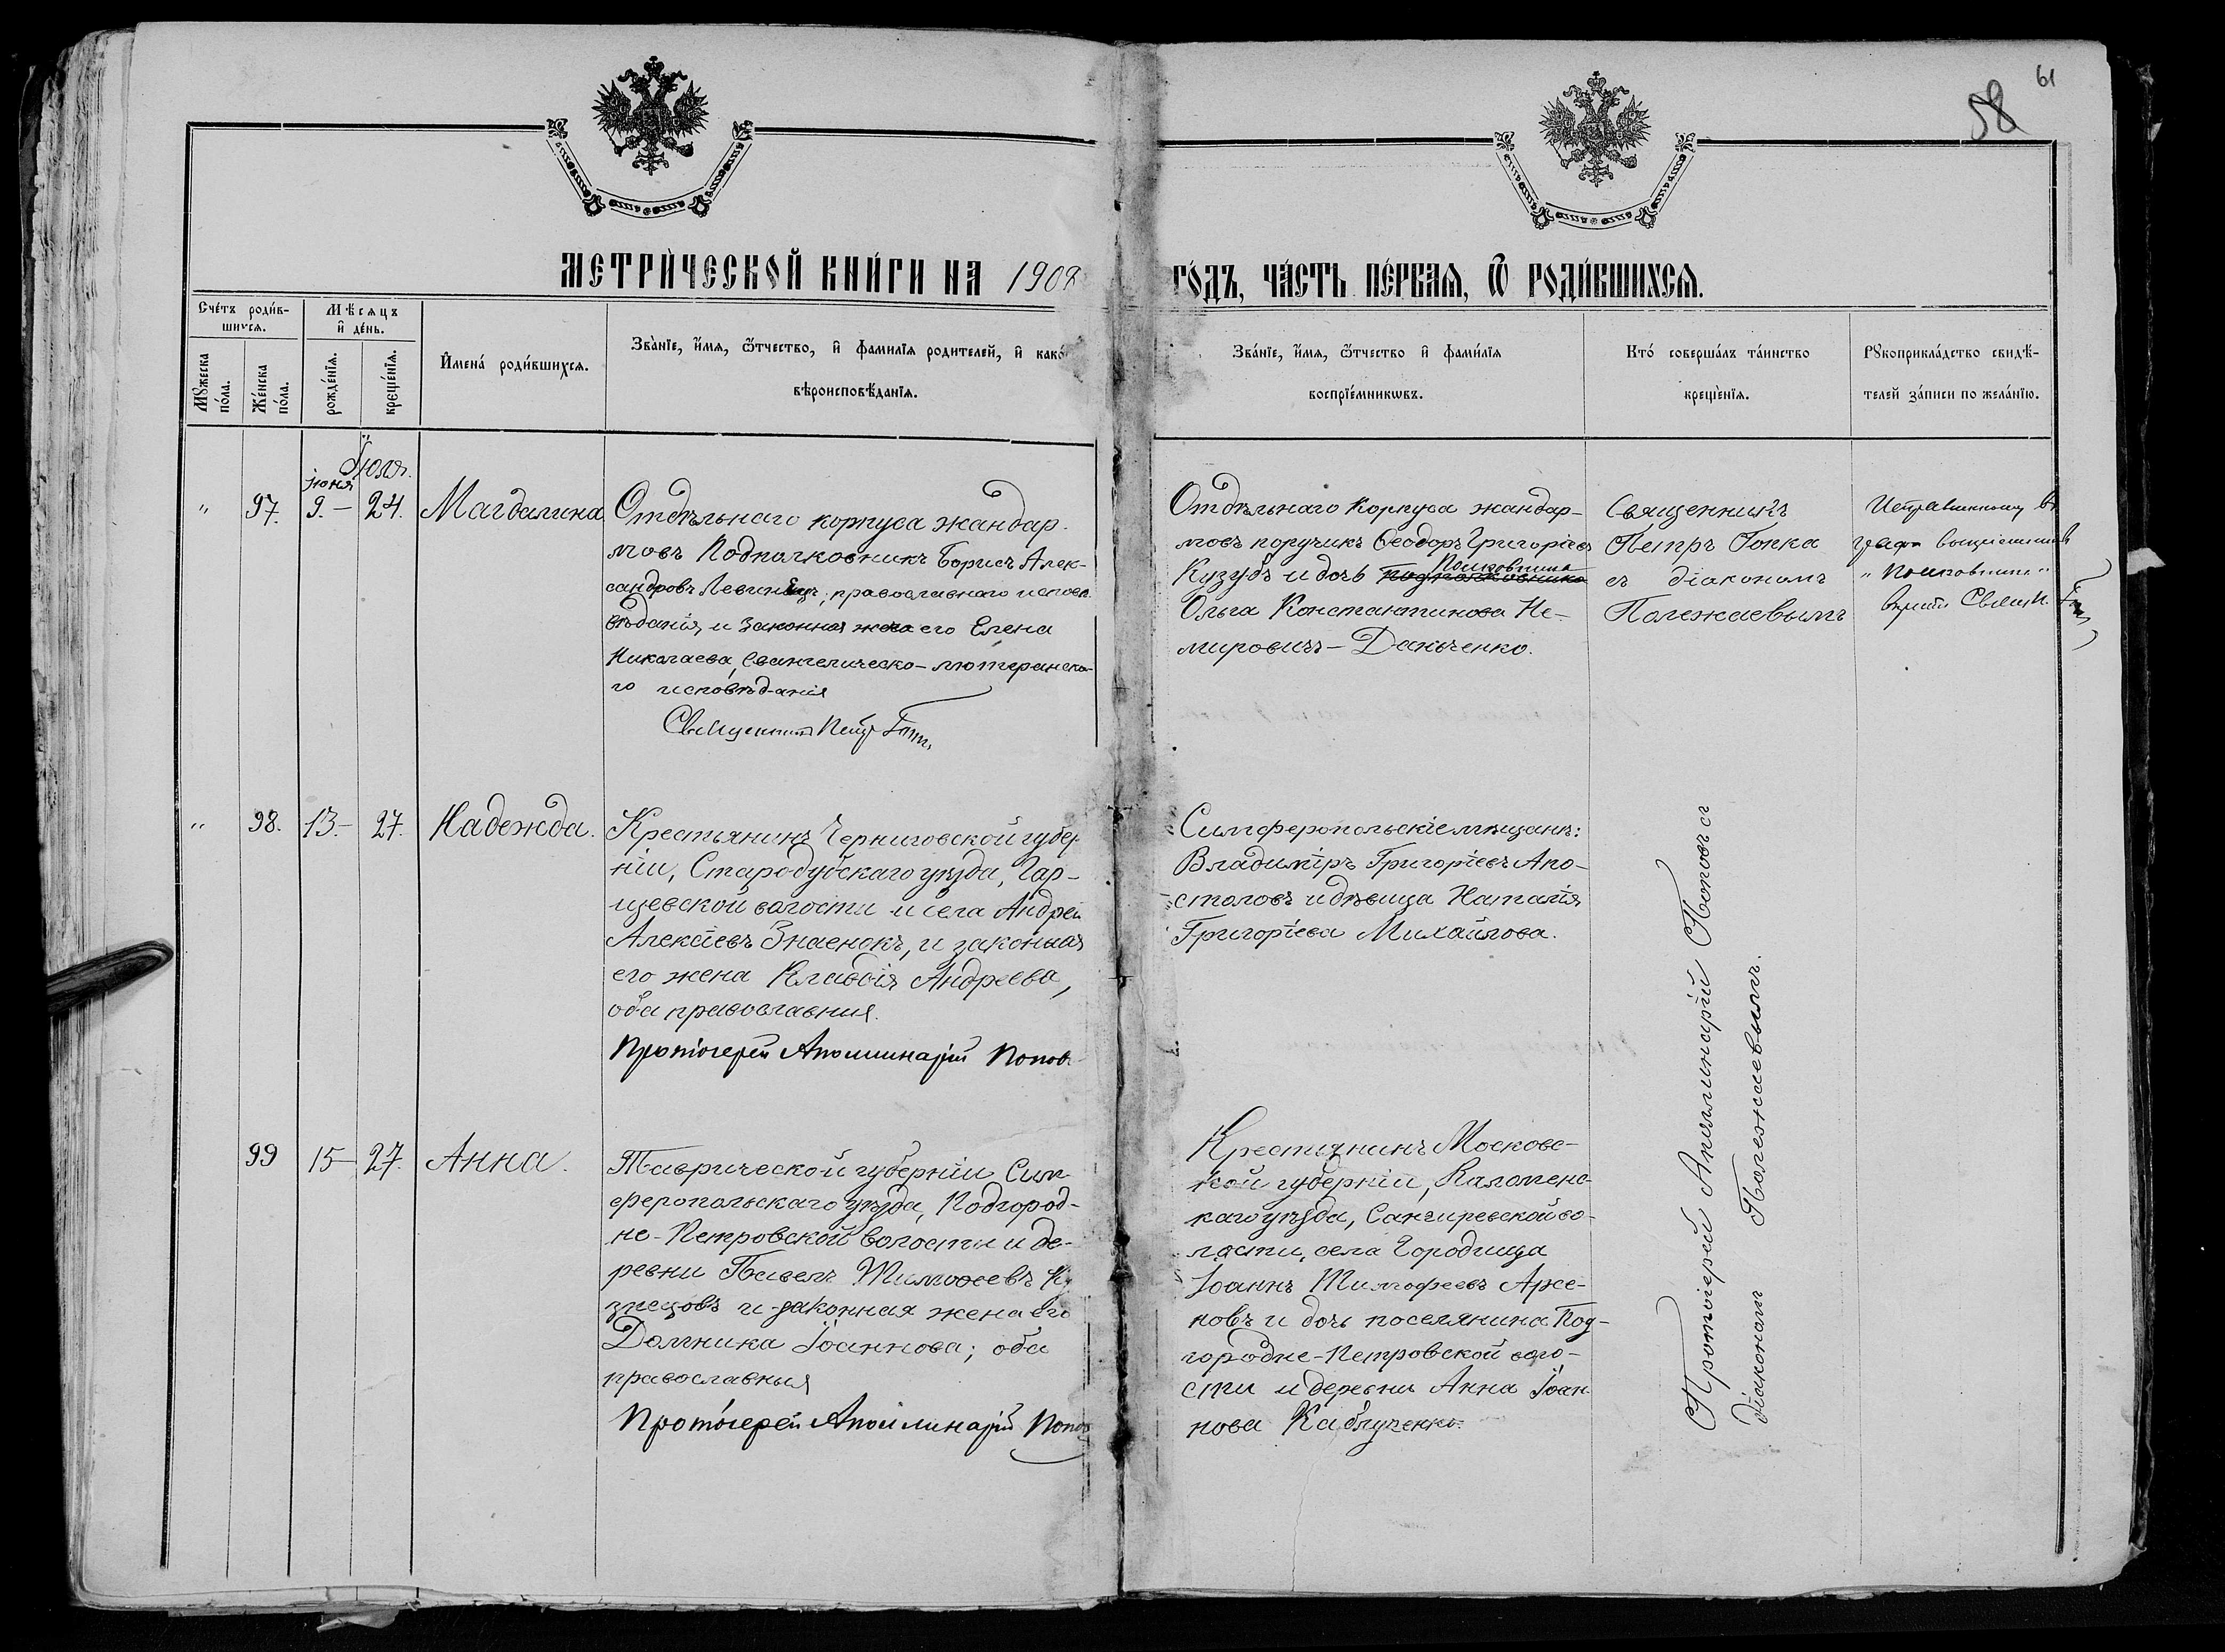 61
58
МЕТРИ́ЧЕСКОЙ КНИ́ГИ НА 1902
ГО́ДЪ, ЧА́СТЬ ПЕ́РВАЯ, Ѿ РОДИ́ВШИХСЯ.
Сче́тъ роди́в-
шихся.
Му́жеска по́ла.
Же́нска по́ла.
Мѣсяцъ и де́нь.
рожде́нія.
креще́нія.
Имена́ роди́вшихся.
Зва́ніе, и́мя, ѻ́тчество, и фамилія родителей, и како́
вѣроисповѣ́данія.
Зва́ніе, и́мя, ѻ́тчество и фами́лія
воспріе́мникѡвъ.
Кто́ соверша́лъ та́инство
креще́нія.
Рукоприкла́дство свидѣ́-
телей за́писи по жела́нію.
"
97.
Іюня
9.–
Іюля.
24.
Магдалина
Отдѣльнаго корпуса жандар-
мовъ Подполковникъ Борисъ Алек-
сандровъ православнаго испов
ѣданія, и законная жена его Елена
Николаева, Евангелическо-лютеранска-
го исповѣданія
Священникъ Петр
Отдѣльнаго Корпуса жандар-
мовъ поручикъ Ѳеодоръ Григоріевъ
Кузубъ и дочь подполковника Полковника
Ольга Константинова Не-
мировичъ-Данченко.
Священникъ
Петръ Гопка
съ діакономъ
Полежаевымъ
Исправленному въ
графѣ
"Полковника"
вѣрить Свящ.
"
98.
13.–
27.
Надежда.
Крестьянинъ Черниговской губер
ніи, Стародубскаго уѣзда, Гар-
цевской волости и села Андрей
Алексіевъ Знаенокъ, и законная
его жена Клавдія Андреева,
оба православныя.
Протоіерей Аполлинарій Попов
Симферопольскіе мѣщане:
Владиміръ Григоріевъ Апо-
столовъ и дѣвица Наталія
Григоріева Михайлова.
Протоіерей Аполлинарій Поповъ съ
діакономъ Полежаевымъ.
99
15–
27.
Анна.
Таврической губерніи Сим
феропольскаго уѣзда, Подгород-
не-Петровской волости и де-
ревни Павелъ Тимоѳеевъ Ку
знецовъ и законная жена его
Домника Іоаннова; оба
православныя
Протоіерей Аполлинарій Попов
Крестьянинъ Московс-
кой губерніи, Каломенс-
каго уѣзда, Сангиревской во-
лости, села Городища
Іоаннъ Тимофеевъ Арсе-
новъ и дочь поселянина Под-
городне-Петровской воло-
сти и деревни Анна Іоан-
нова Каблученко.